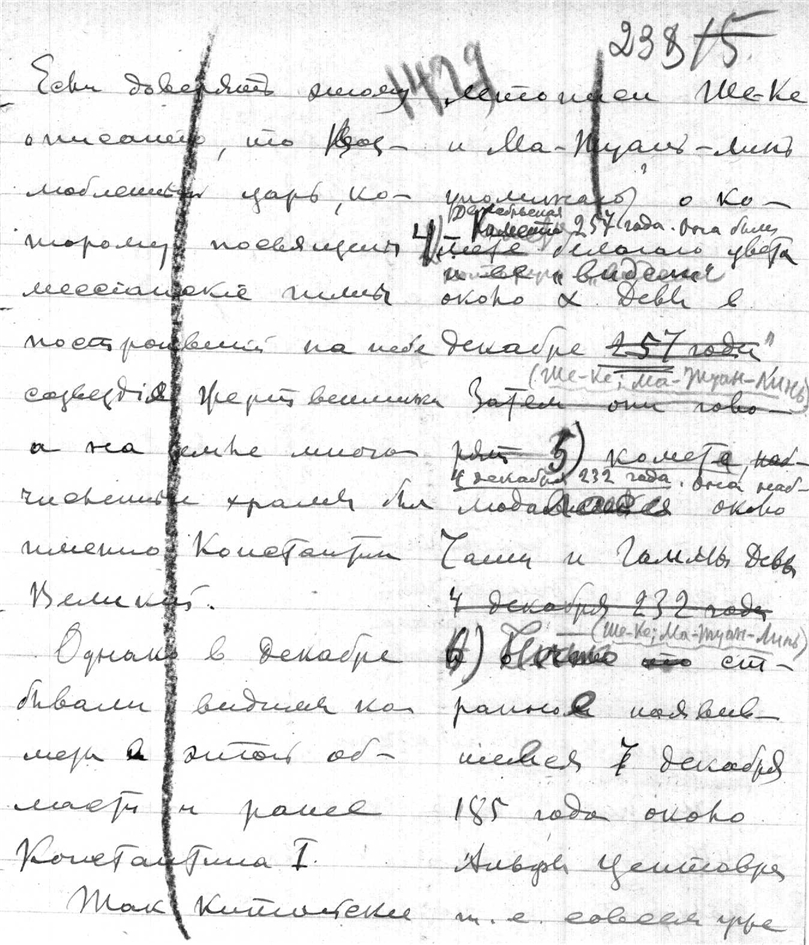 238 15.
1429
Если доверять этому
описанию, то
мобленный царь, ко-
торому посвящены
мессианские гимны
построивший на небе
созвездія Жертвенника
а на земле много-
численные храмы был
именно Константин
Великий.
Однако в декабре
бывали видимы ко-
меты в этой об-
ласти и ранее
Константина I.
Так китайские
летописи Ше-Ке
и Ма-Туань-Линь
упоминают о ко-
Декабрьская
Комета 257 года. Она была
4) мете белого цвета
и ее видели
около α Девы в
декабре 257 года"
(Ше-Ке; Ма-Туан-Линь)
Затем они гово-
рят 5) комета наб-
4 декабря 232 года. Она наб-
людалась около
Чаши и Гаммы Девы
4 декабря 232 года
(Ше-Ке; Ма-Туан-Линь)
6) о ст-
ранное появив-
шейся 7 декабря
185 года около
Альфы Центавра
т. е. совсем уже